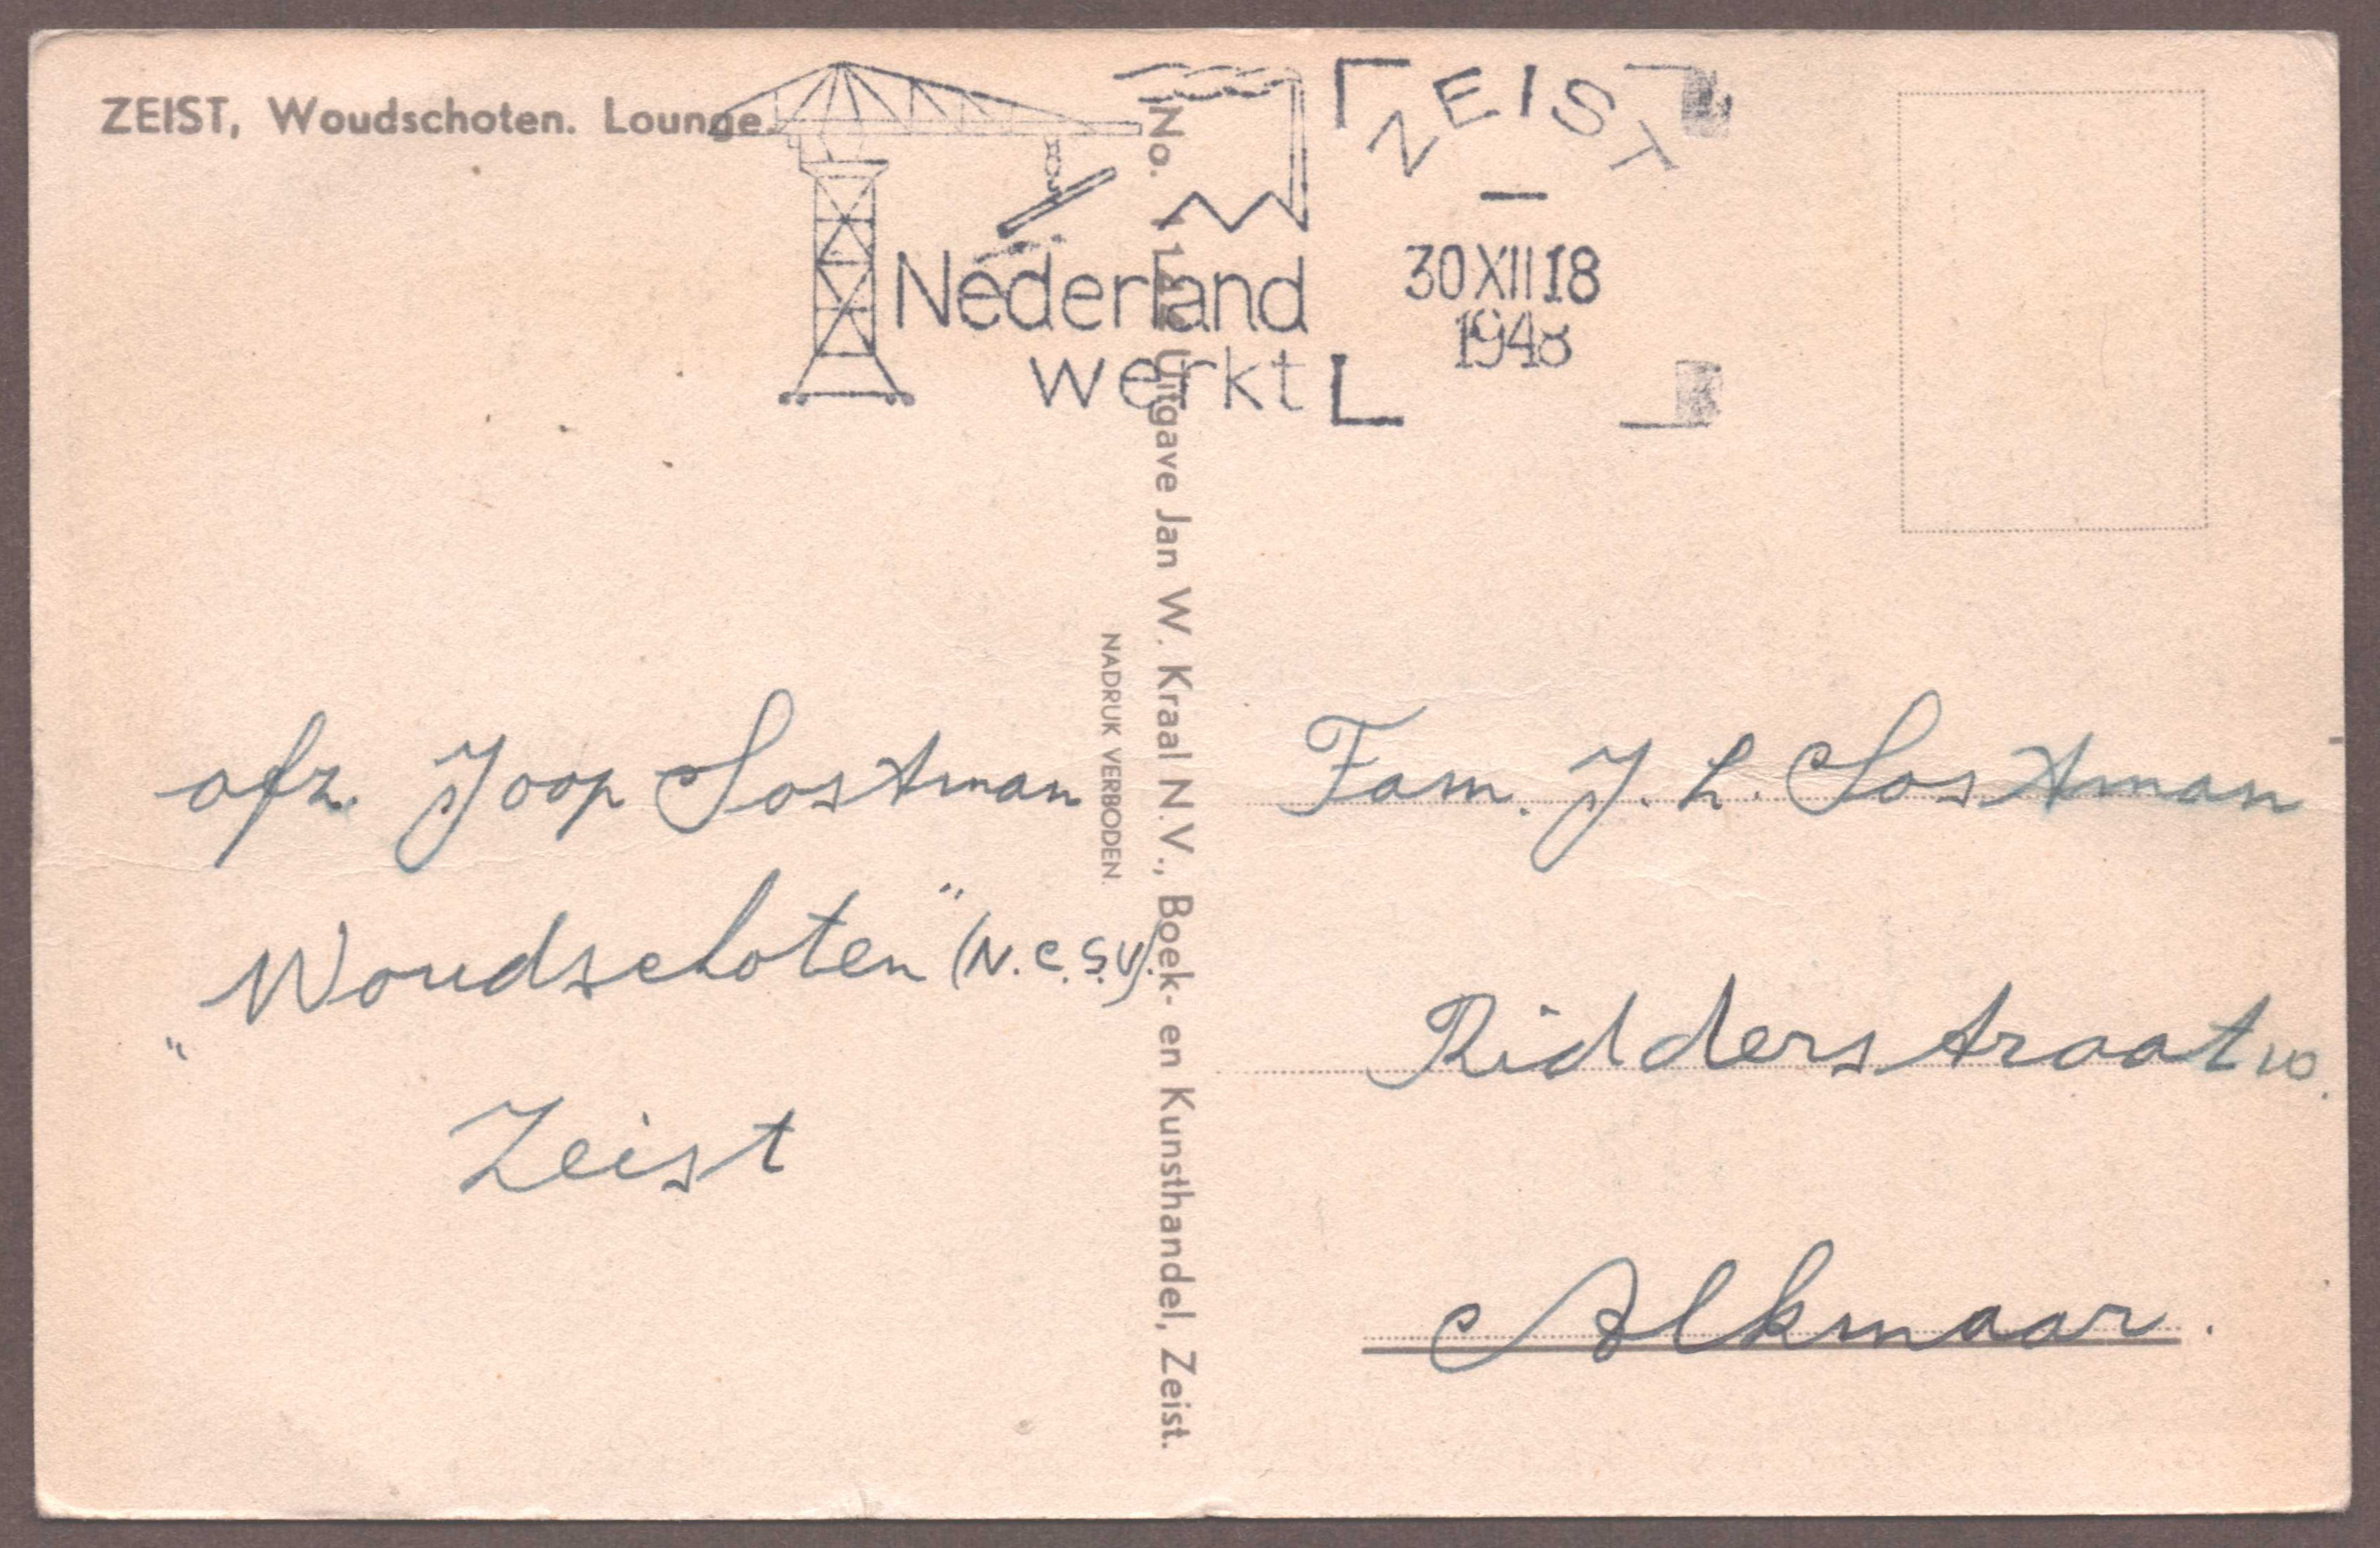 ZEIST, Woudschoten. Lounge.
Nederland
werkt
ZEIST
30 XII 18
1948
No. Uitgave Jan W. Kraal N.V., Boek- en Kunsthandel, Zeist.
NADRUK VERBODEN.
afz. Joop Sostman
„Woudschoten" (N.C.S.V).
Zeist
Fam. J. L. Sostman
Ridderstraat 10.
Alkmaar.